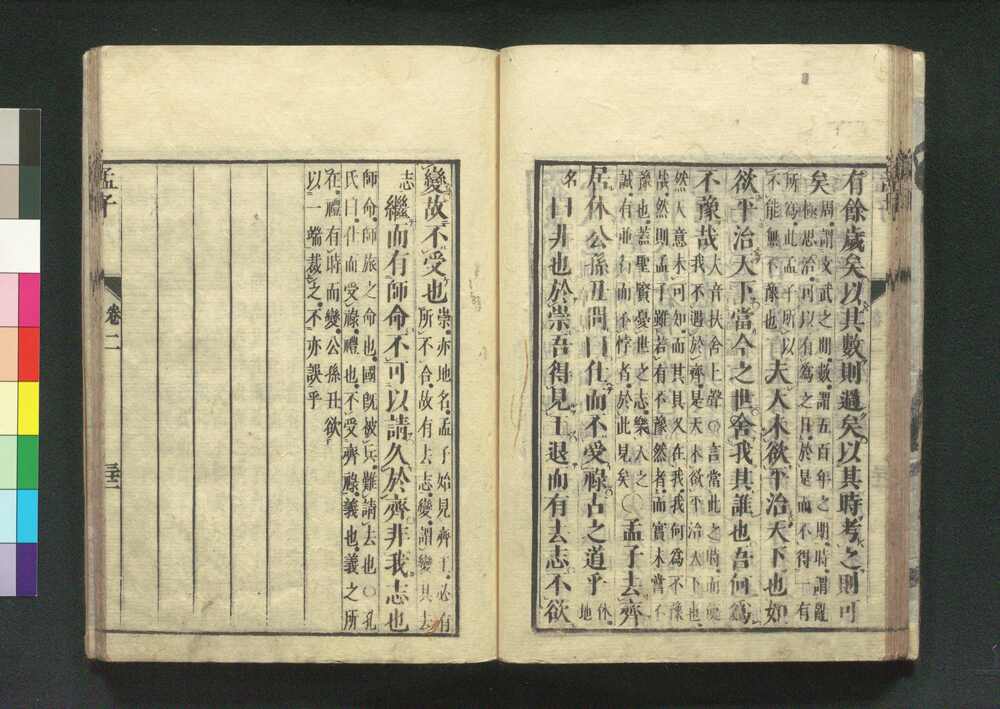 有餘歲矣以其數則過矣以其時考之則可
矣周謂文武之間數謂五百年之期時謂亂
極思治可以有爲之日於是而不得一有
所爲此孟子所以
不能無不豫也夫天未欲平治天下也如
欲平治天下當今之世舍我其誰也吾何爲
不豫哉夫音扶舍上聲○言當此之時而使
我不遇於齊是天未欲平治天下也
然天意未可知而其具又在我我何爲不豫
哉然則孟子雖若有不豫然者而實未嘗不
豫也蓋聖賢憂世之志樂天之
誠有並行而不悖者於此見矣○孟子去齊
居休公孫丑問曰仕而不受祿古之道乎休
地
名曰非也於崇吾得見王退而有去志不欲
變故不受也崇亦地名孟子始見齊王必有
所不合故有去志變謂變其去
志繼而有師命不可以請久於齊非我志也
師命師旅之命也國旣被兵難請去也○孔
氏曰仕而受祿禮也不受齊祿義也義之所
在禮有時而變公孫丑欲
以一端裁之不亦誤乎
孟子
卷二
三十二